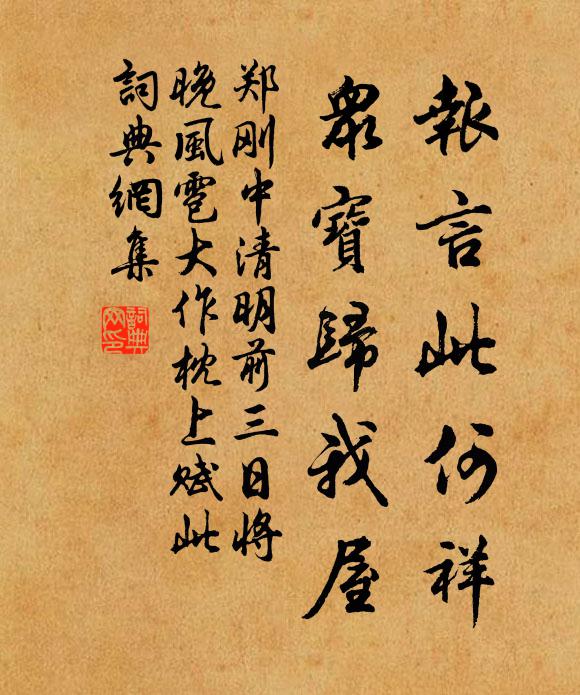 報言此何祥
眾寶歸我屋
郑刚中清明前三日將
晚風雹大作枕上赋此
詞典網集
詞典網印